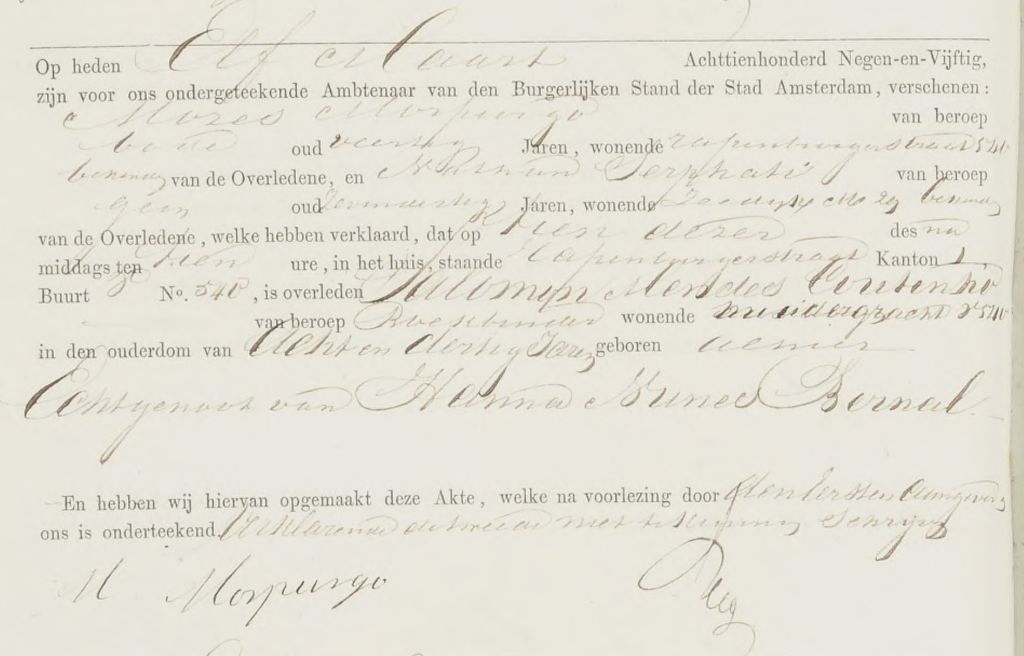 Op heden Elf Maart Achttienhonderd Negen-en-Vijftig,
zijn voor ons ondergeteekende Ambtenaar van den Burgerlijken Stand der Stad Amsterdam, verschenen:
Mozes Morpurgo van beroep
bode oud veertig Jaren, wonende Rapenburgerstraat 540
bekende van de Overledene, en Nathan Serphati van beroep
geen oud Jaren, wonende No 29 bekende
van de Overledene, welke hebben verklaard, dat op tien dezer des na
middags ten tien ure, in het huis, staande Rapenburgerstraat Kanton 1.
Buurt No. 540, is overleden Salomon Mendes Coutinho
van beroep Boekbinder wonende Muidergracht 540
in den ouderdom van Acht en dertig Jaren geboren alhier
Echtgenoot van Hanna Nunes Bernal
En hebben wij hiervan opgemaakt deze Akte, welke na voorlezing door den eersten Aangever en
ons is onderteekend. Verklarende de tweede niet te kunnen Schrijven
M Morpurgo